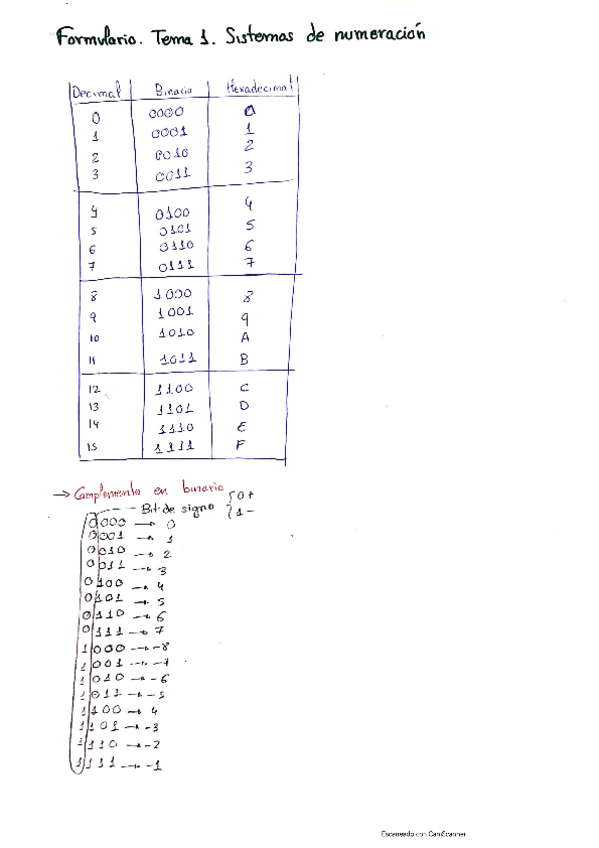 Formulario. Tema 1. Sistemas de numeración
Decimal Binario Hexadecimal
0 0000 0
1 0001 1
2 0010 2
3 0011 3
4 0100 4
5 0101 5
6 0110 6
7 0111 7
8 1000 8
9 1001 9
10 1010 A
11 1011 B
12 1100 C
13 1101 D
14 1110 E
15 1111 F
→ Complemento en binario { 0+
Bit de signo 1-
0000 → 0
0001 → 1
0010 → 2
0011 → 3
0100 → 4
0101 → 5
0110 → 6
0111 → 7
1000 → -8
1001 → -7
1010 → -6
1011 → -5
1100 → 4
1101 → -3
1110 → -2
1111 → -1
Escaneado con CamScanner